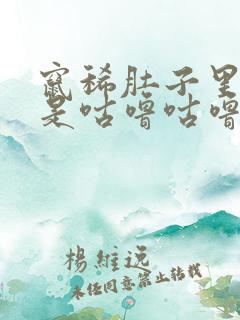 窜稀肚子里
是咕噜咕噜
杨维远
未经同意禁止转载